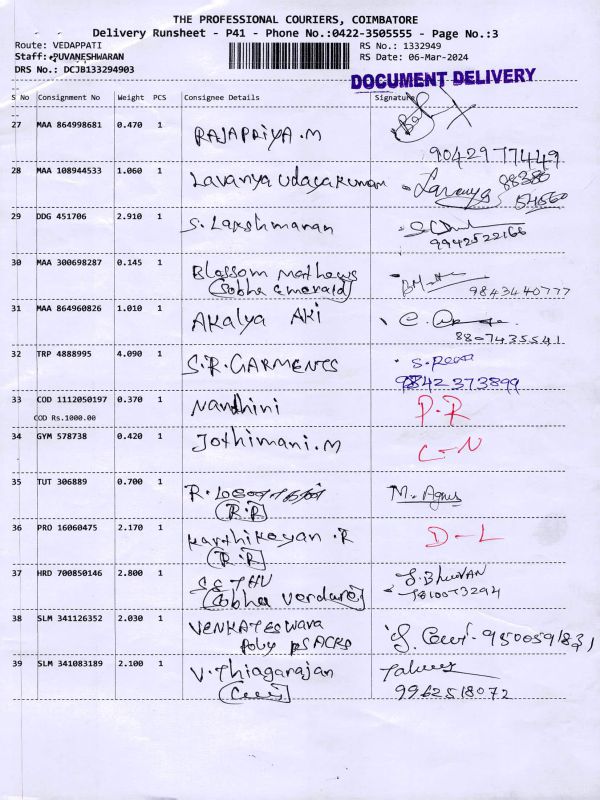 THE PROFESSIONAL COURIERS, COIMBATORE
Delivery Runsheet - P41 - Phone No.:0422-3505555 - Page No.:3
Route: VEDAPPATI
RS No.: 1332949
Staff: PUVANESHWARAN
RS Date: 06-Mar-2024
DRS No.: DCJB133294903
DOCUMENT DELIVERY
S No Consignment No Weight PCS Consignee Details Signature
27 MAA 864998681 0.470 1 RAJAPRIYA.M
9042977449
28 MAA 108944533 1.060 1 Lavanya Udayakumar Lavanya 88386
29 DDG 451706 2.910 1 S. Lakshmanan
9942522166
30 MAA 300698287 0.145 1 Blessom Mathews
(Sobha Emerald) 9843440777
31 MAA 864960826 1.010 1 Akalya AKI
8807435541
32 TRP 4888995 4.090 1 S.R. GARMENTS
9842373899
33 COD 1112050197 0.370 1 Nandhini P.R
COD Rs.1000.00
34 GYM 578738 0.420 1 Jothimani.M C-N
35 TUT 306889 0.700 1 R. M. Agnus
(R.R)
36 PRO 16060475 2.170 1 Karthikeyan.R D-L
(R.R)
37 HRD 700850146 2.800 1 SETHU
(Sobha Verdure)
38 SLM 341126352 2.030 1 VENKATESWARA
Poly
39 SLM 341083189 2.100 1 V. Thiagarajan
9962518072